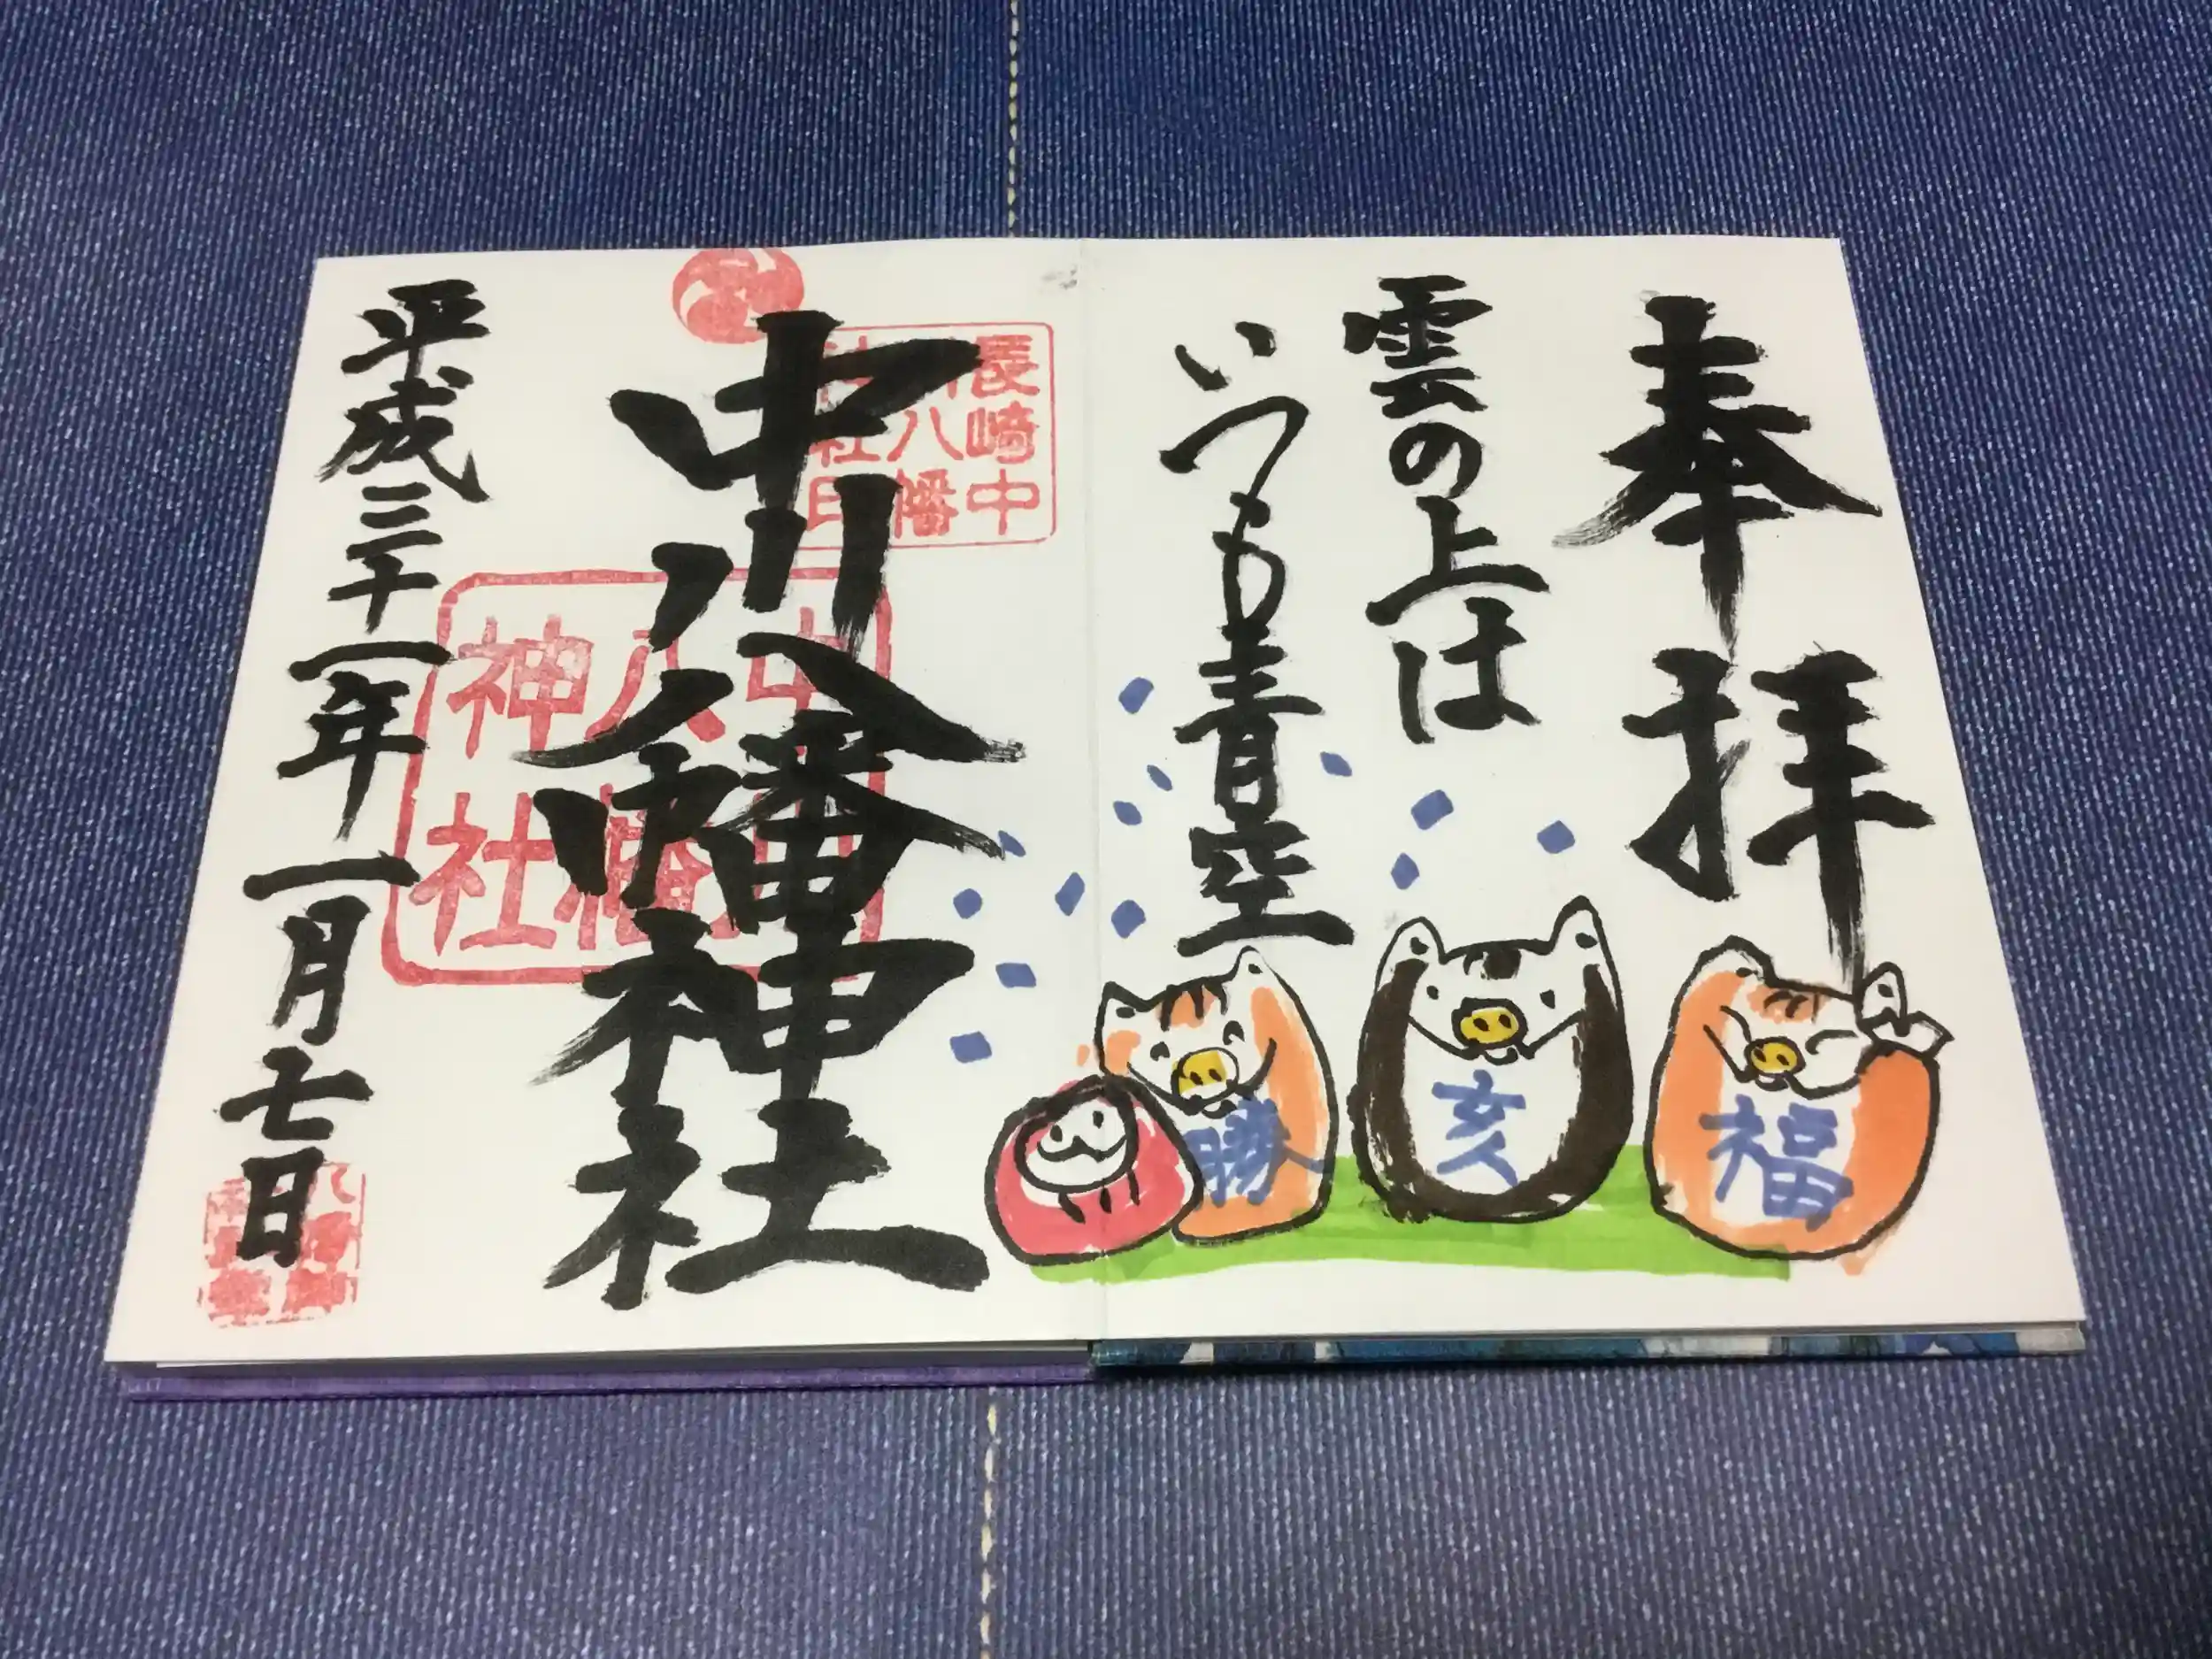 奉拝
雲の上は
いつも青空
福
亥
勝
長崎中
川八幡
神社印
中川八幡神社
中川
八幡
神社
平成三十一年一月七日